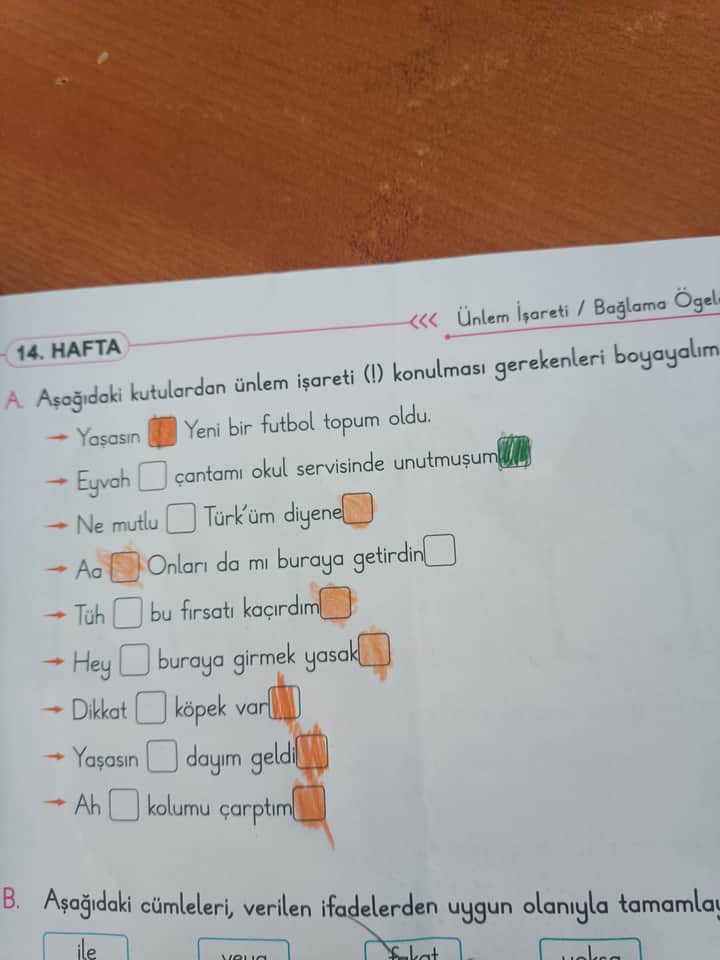 14. HAFTA
Ünlem İşareti / Bağlama
A. Aşağıdaki kutulardan ünlem işareti (!) konulması gerekenleri boyayalım
→ Yaşasın Yeni bir futbol topum oldu.
→ Eyvah çantamı okul servisinde unutmuşum
→ Ne mutlu Türk'üm diyene
→ Aa Onları da mı buraya getirdin
→ Tüh bu fırsatı kaçırdım
→ Hey buraya girmek yasak
→ Dikkat köpek var
→ Yaşasın dayım geldi
→ Ah kolumu çarptım
B. Aşağıdaki cümleleri, verilen ifadelerden uygun olanıyla
ile veya fakat yoksa